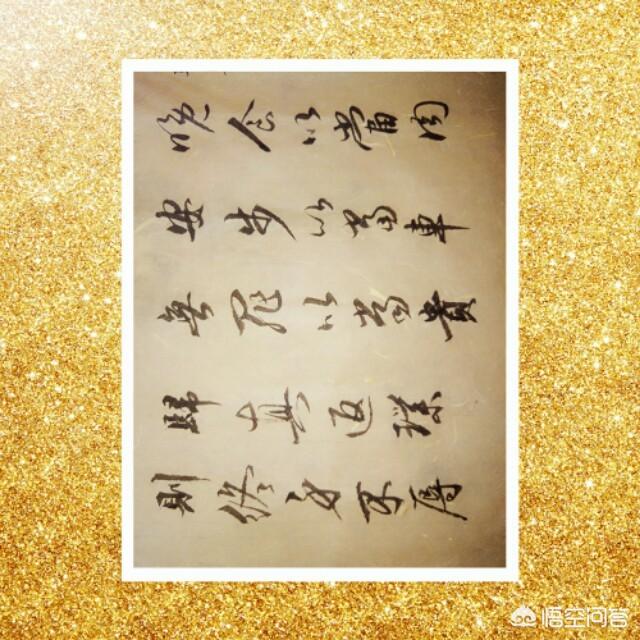 晚食以當肉
安步以當車
無罪以當貴
歸真返璞
則終身不辱
悟空问答